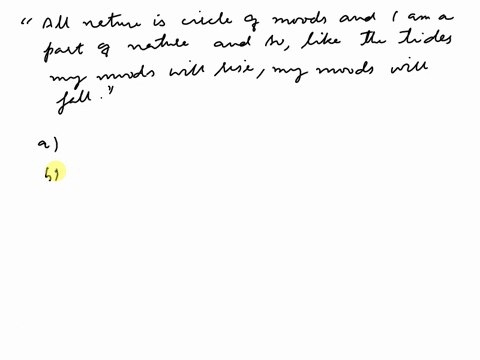 “ All nature is circle of moods and I am a
part of nature and so, like the tides
my moods will rise, my moods will
fall.”
a)
b)